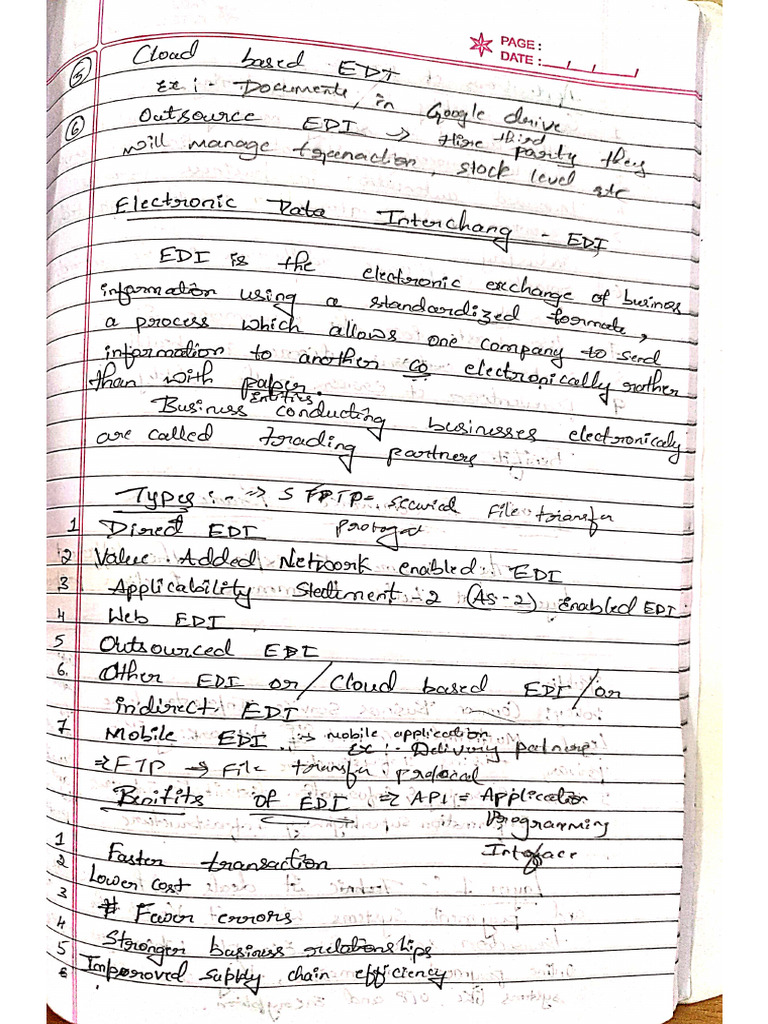 PAGE:
DATE:
5 Cloud based EDI
Ex :- Documents, in Google derive
6 Outsource EDI → Hire third parity they
will manage trenaction, stock level etc
Electronic Data Interchang - EDI
EDI is the electronic exchange of busines
information using a standardized formate,
a process which allows one company to send
information to another co electronically rather
than with paper.
Business Entities conducting businesses electronicaly
are called trading partners
Types :- => SFTP = secured File transfer
protogat
1 Direct EDI
2 Value Added Network enabled EDI
3 Applicability Stediment - 2 (AS-2) Enabled EDI
4 Web EDI
5 Outsourced EDI
6. Other EDI or / Cloud based EDI / or
indirect EDI
7 Mobile EDI → mobile application
Ex :- Delivery patners
=> FTP → File transfer protocal
Benifits of EDI => API = Application
Programming
Interface
1 Faster transaction
2 Lower cost
3 Fewer errors
4 Stronger business relationships
5 Improved supply chain efficiency
6